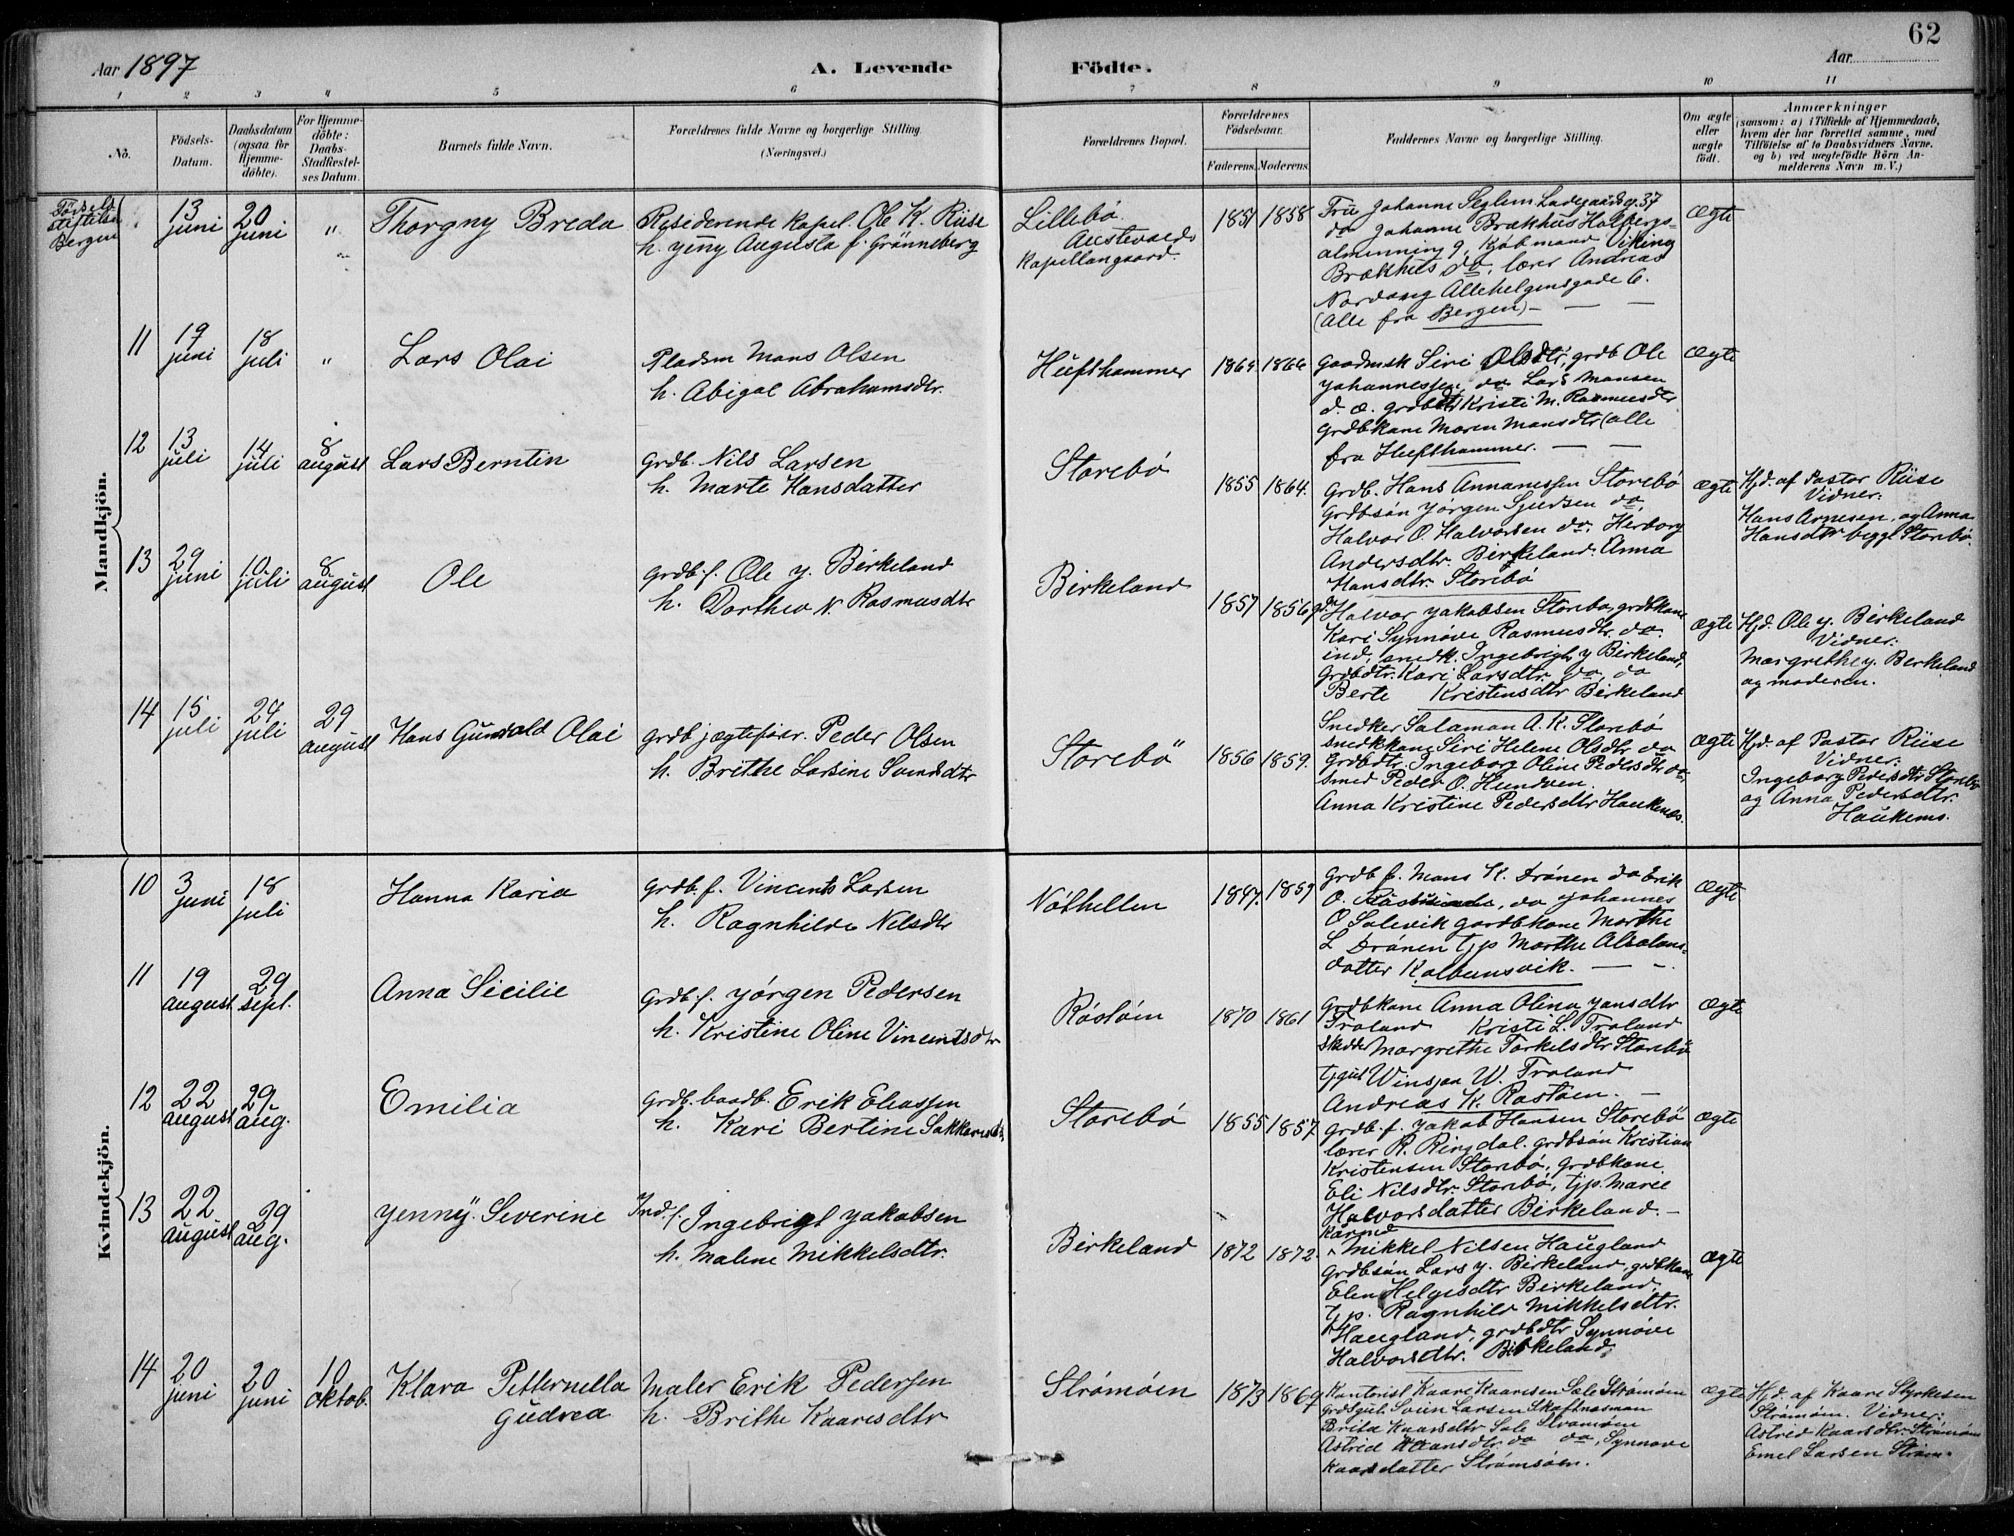 62
Aar 1897
A. Levende Födte.
Aar
1 2 3 4 5 6 7 8 9 10 11
No.
Födsels-
Datum.
Daabsdatum
(ogsaa for
Hjemme-
döbte).
For Hjemme-
döbte:
Daabs-
Stadfæstel-
ses Datum.
Barnets fulde Navn.
Forældrenes fulde Navne og borgerlige Stilling.
(Næringsvei.)
Forældrenes Bopæl.
Forældrenes
Födselsaar.
Faderens. Moderens.
Faddernes Navne og borgerlige Stilling.
Om ægte
eller
uægte
födt.
Anmærkninger
(saasom: a) i Tilfælde af Hjemmedaab,
hvem der har forrettet samme, med
Tilföielse af to Daabsvidners Navne,
og b) ved uægtefödte Börn An-
melderens Navn m. V.)
Mandkjön.
Fødsels
stiftelsen
Bergen
13 juni
20 juni
"
Thorgny Breda
Residerende kapel. Ole K. Riise
h. Jeny Augusta f. Grönneberg
Lillebø
Austevold
Kapellangaard.
1851 1858
Fru Johanne Seglem Ladegaardsg. 37
do Johanne Brækhus Holbergs-
almenning 9, Kjøbmand Viking
Brækhus do, lærer Andreas
Nordvang Allehelgensgade 6.
(Alle fra Bergen) —
Ægte
11
19 juni
18 juli
"
Lars Olai
Pladsm Mons Olsen
h. Abigal Abrahamsdtr.
Hufthammer
1864 1866
Gaardmsk Siri Olsdtr, grdb Ole
Johannessen, do Lars Monsen
d. æ. grdbdtr Kristi M. Rasmusdtr
Grdbkone Maren Monsdtr (alle
fra Hufthammer. —
Ægte
12
13 juli
14 juli
8 august
Lars Berntin
Grdb. Nils Larsen
h. Marte Hansdatter
Storebø
1855 1864.
Grdb. Hans Annanessen Storebø
Grdbsøn Jørgen Sjursen do,
Halvor O. Halvorsen do, Herborg
Andersdtr. Birkeland. Anna
Hansdtr. Storebø
ægte
Hjd. af Pastor Riise
Vidner:
Hans Arnesen, og Anna
Hansdtr begge Storebø.
13
29 juni
10 juli
8 august
Ole
Grdb. f. Ole J. Birkeland
h. Dorthea N Rasmusdtr
Birkeland
1857 1856
Halvor Jakobsen Storebø, grdbkone
Kari Synnøve Rasmusdtr. do.
ind, snedk. Ingebrigt J Birkeland,
Grdbdtr. Kari Larsdtr. do, do
Berte Kristensdtr Birkeland
ægte
Hjd. Ole J. Birkeland
Vidner:
Margrethe J. Berkeland
og moderen.
14
15 juli
24 juli
29 august
Hans Gunvald Olai
Grdb jægtefører. Peder Olsen
h. Brithe Larsine Svendsdtr
Storebø
1856 1859.
Snedker Salamon A. K. Storebø
snedkkone Siri Helene Olsdtr do
Grdbdtr. Ingeborg Oline Pedersdtr do,
Smed Peder O. Hundven.
Anna Kristine Pedersdtr Haukenæs.
Ægte
Hjd. af Pastor Riise
Vidner:
Ingeborg Pedersdtr Storebø
og Anna Pedersdtr.
Haukems.
Kvindekjön.
10
3 juni
18 juli
Hanna Karia
Grdb. f. Vincents Larsen
h. Ragnhilde Nilsdtr
Nöthellen
1847. 1859
Grdb f. Mons K. Drönen do Erik
O. , do Johannes
O Salevik gardbkone Marthe
L Drönen tjp Marthe
datter Kolbensvik. —
Ægte
11
19 august
29 sept.
Anna Sicilie
Grdb. f. Jörgen Pedersen
h. Kristine Oline Vincentsdtr
Rostøen
1870 1861
Grdbkone Anna Olina Jansdtr
Troland Kristi L. Troland
Margrethe Torkelsdtr Storebø
tjgut Winsjan W. Troland
Andreas K. Rostøen. —
Ægte
12
22 august
29 aug.
Emilia
Grdb. baadb. Erik Eliassen
h. Kari Bertine Sakkariasdtr
Storebø
1855 1857.
Grdb. f. Jakob Hansen Storebø
lærer R. Ringdal. grdbsøn Kristian
Kristensen Storebø, Grdbkone
Eli Nilsdtr. Storebø, tjp. Marie
Halvorsdatter Birkeland. —
ægte
13
22 august
29 aug.
Jenny Severine
Ind. f. Ingebrigt Jakobsen
h. Malene Mikkelsdtr.
Birkeland
1872 1872.
Mikkel Nilsen Haugland
Grdbsøn Lars J. Birkeland, grdbkone
Elen Helgesdtr Birkeland,
tjp. Ragnhild Mikkelsdtr.
Haugland, grdbdtr Synnøve
Halvorsdtr. Birkeland,
Ægte
14
20 juni
20 juni
10 oktob.
Klara Petternella
Gudrea
Maler Erik Pedersen
h. Brithe Kaaresdtr
Strømøen
1873 1869
Kantorist Kaare Kaaresen Sole Strømøen
Grdsgut. Svein Larsen Skaftnæsmon
Brita Kaarsdtr Sole Strømøen
Astrid do do, Synnøve
Kaarsdatter Strømsøen.
ægte
Hjd. af Kaare Styrkesen
Strømøen. Vidner:
Astrid Kaarsdtr. Strømøen
Emel Larsen Strøm-